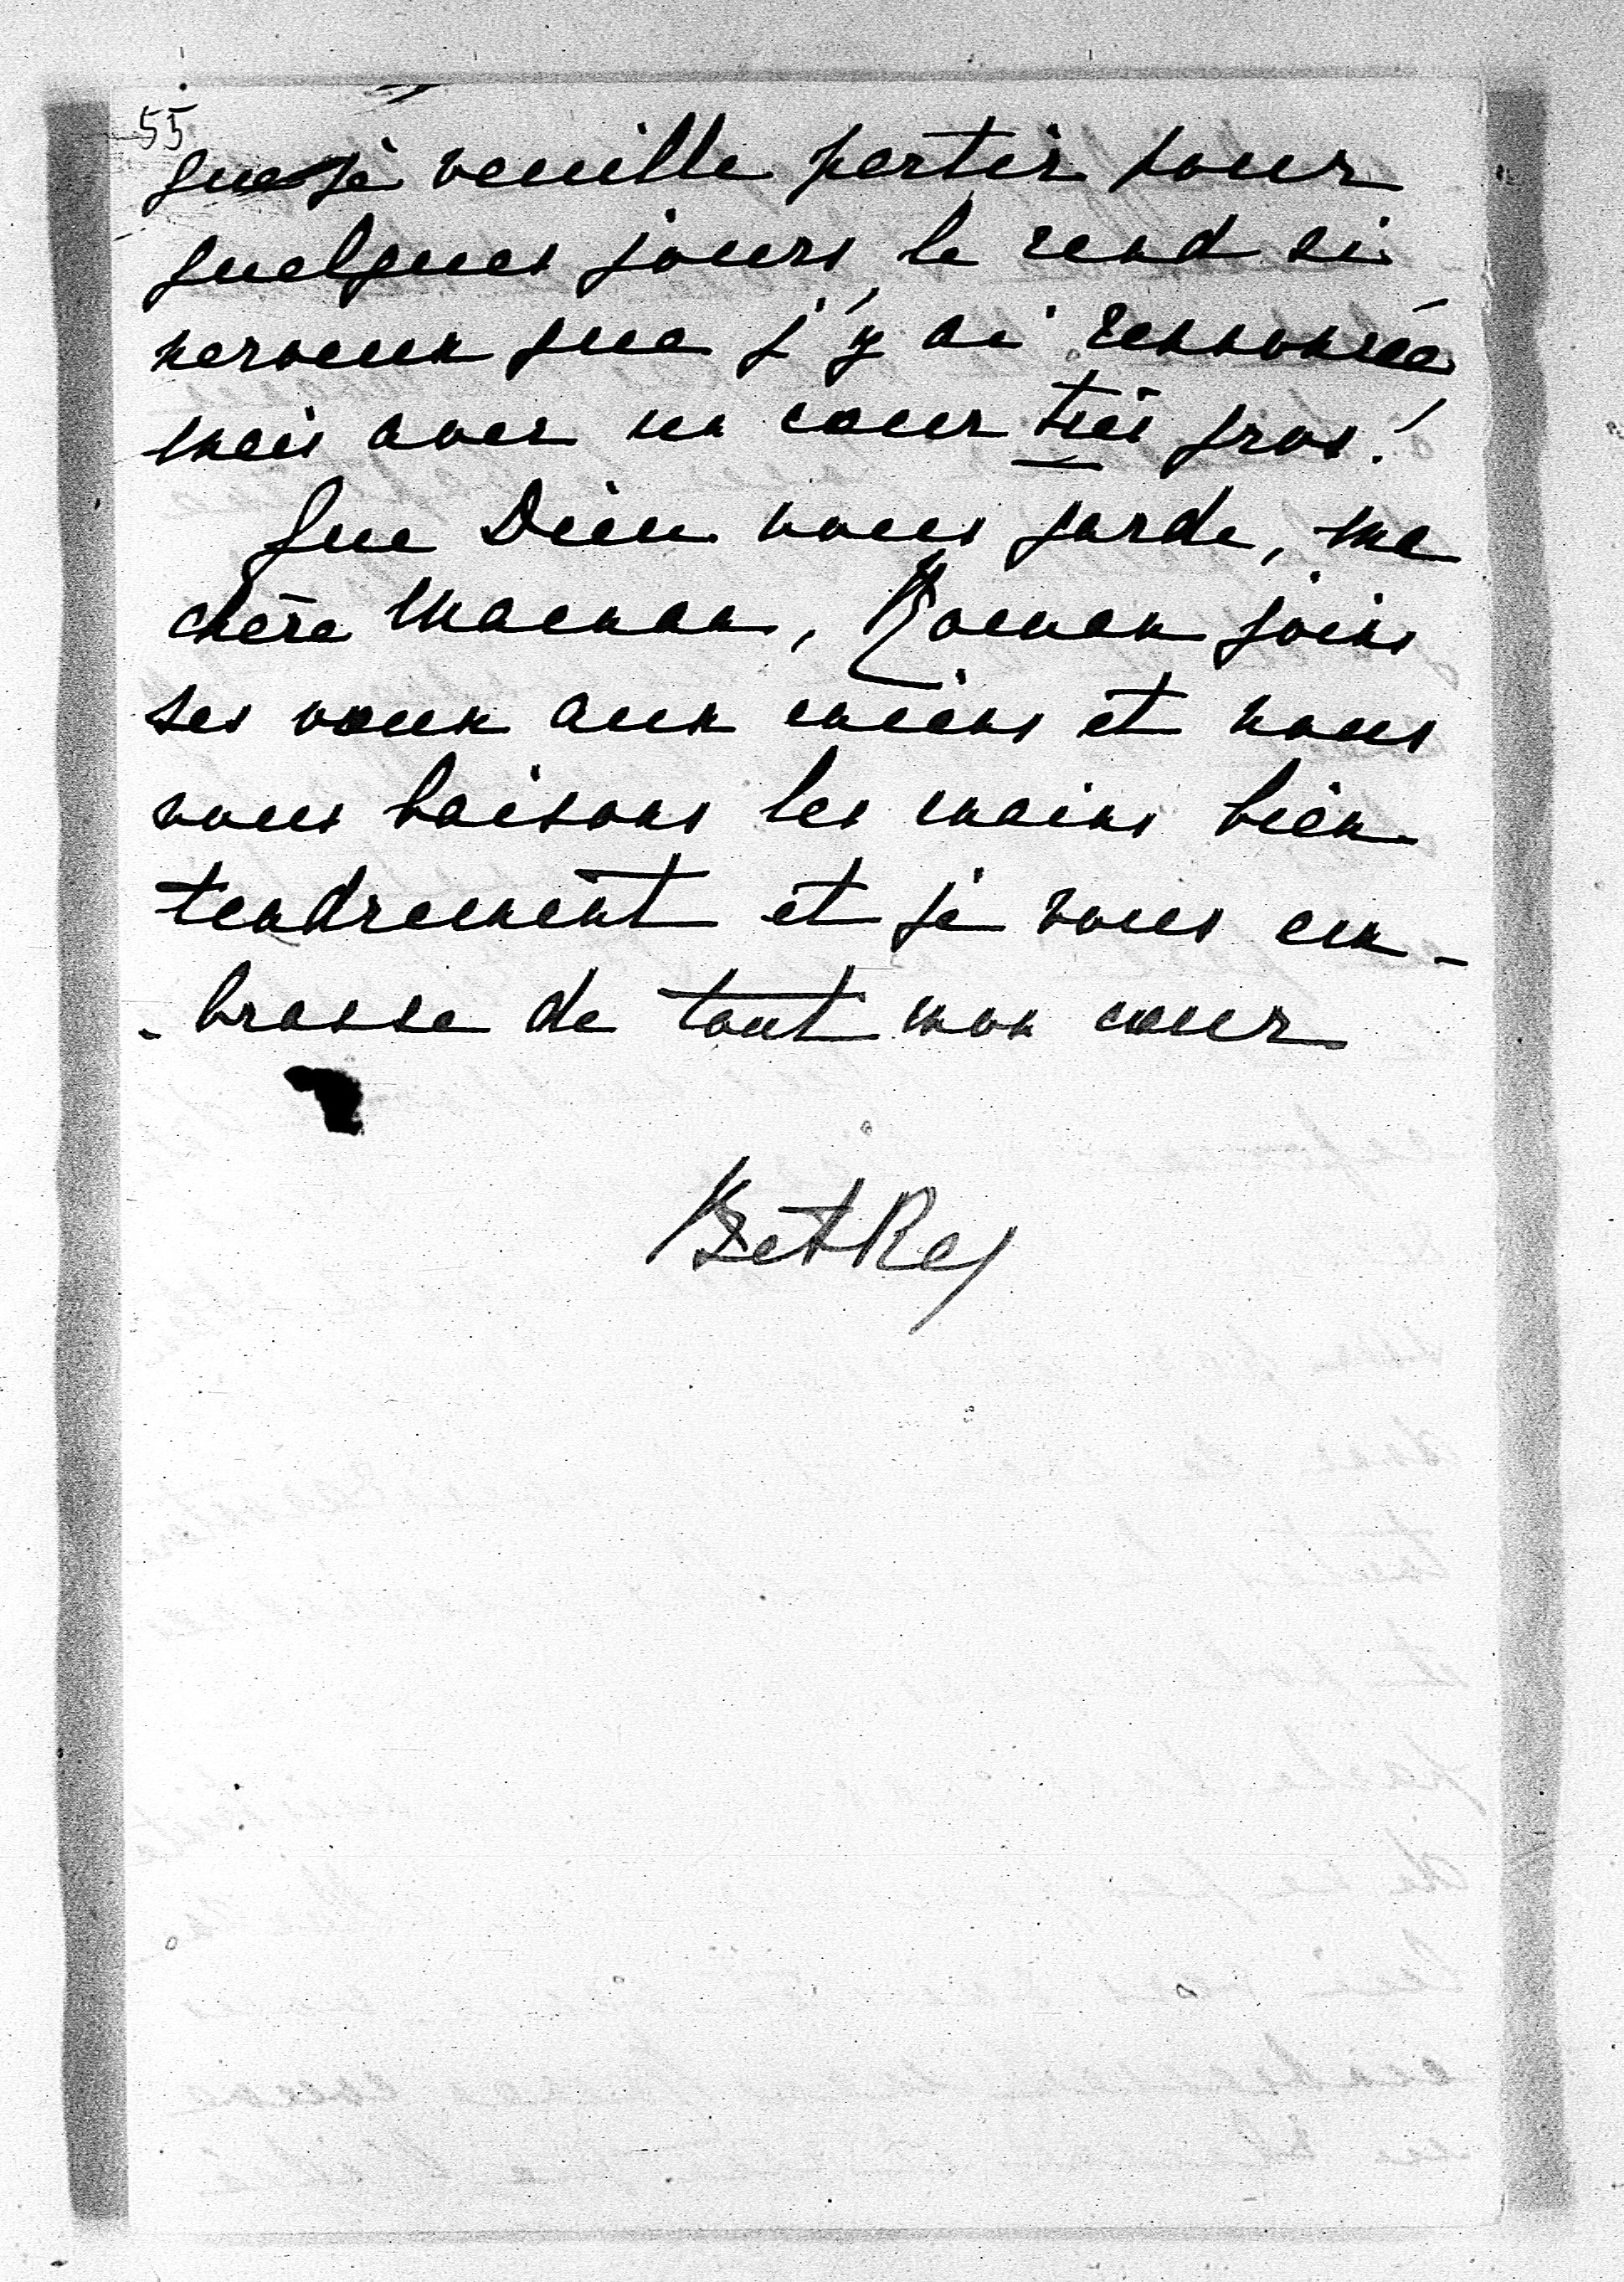 55
que je veuille partir pour
quelques jours, le rend si
nerveux que j'y ai renoncée
mais avec un cœur très gros!
Que Dieu vous garde, ma
chère Maman, Roman joint
ses vœux aux miens et nous
vous baisons les mains bien
tendrement et je vous em-
-brasse de tout mon cœur